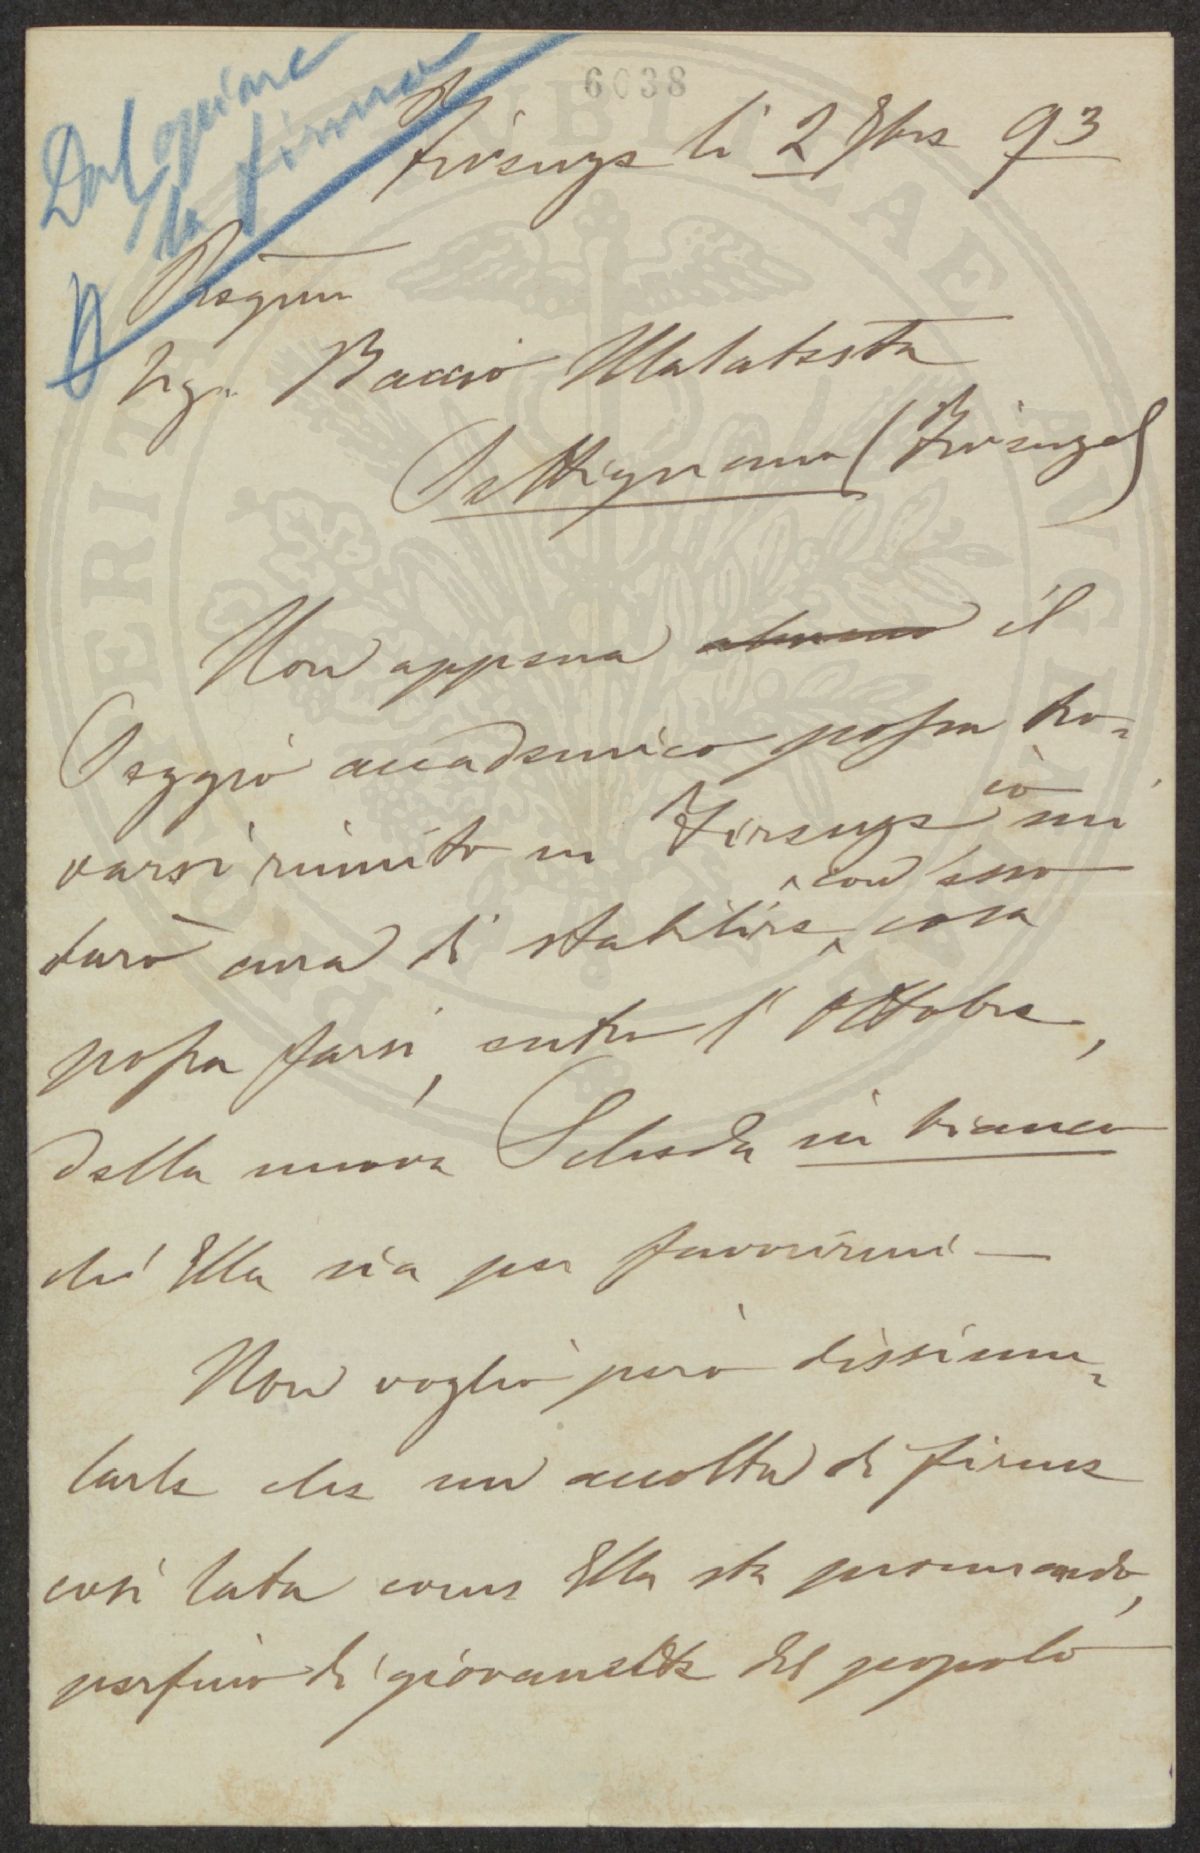 6038
Dal opinare
la firma
Firenze li 2 8bre 93
Pregmo
Sigr Baccio Malatesta
Settignano (Firenze)
Non appena almeno il
Seggio accademico possa tro-
varsi riunito in Firenze io mi
farò cura di stabilire, con esso cosa
possa farsi, entro l'Ottobre,
della nuova Scheda in bianco
ch'Ella sia per favorirmi —
Non voglio però dissimu-
larle che un accolta di firme
così lata come Ella sta procurando,
perfino di giovanette del popolo